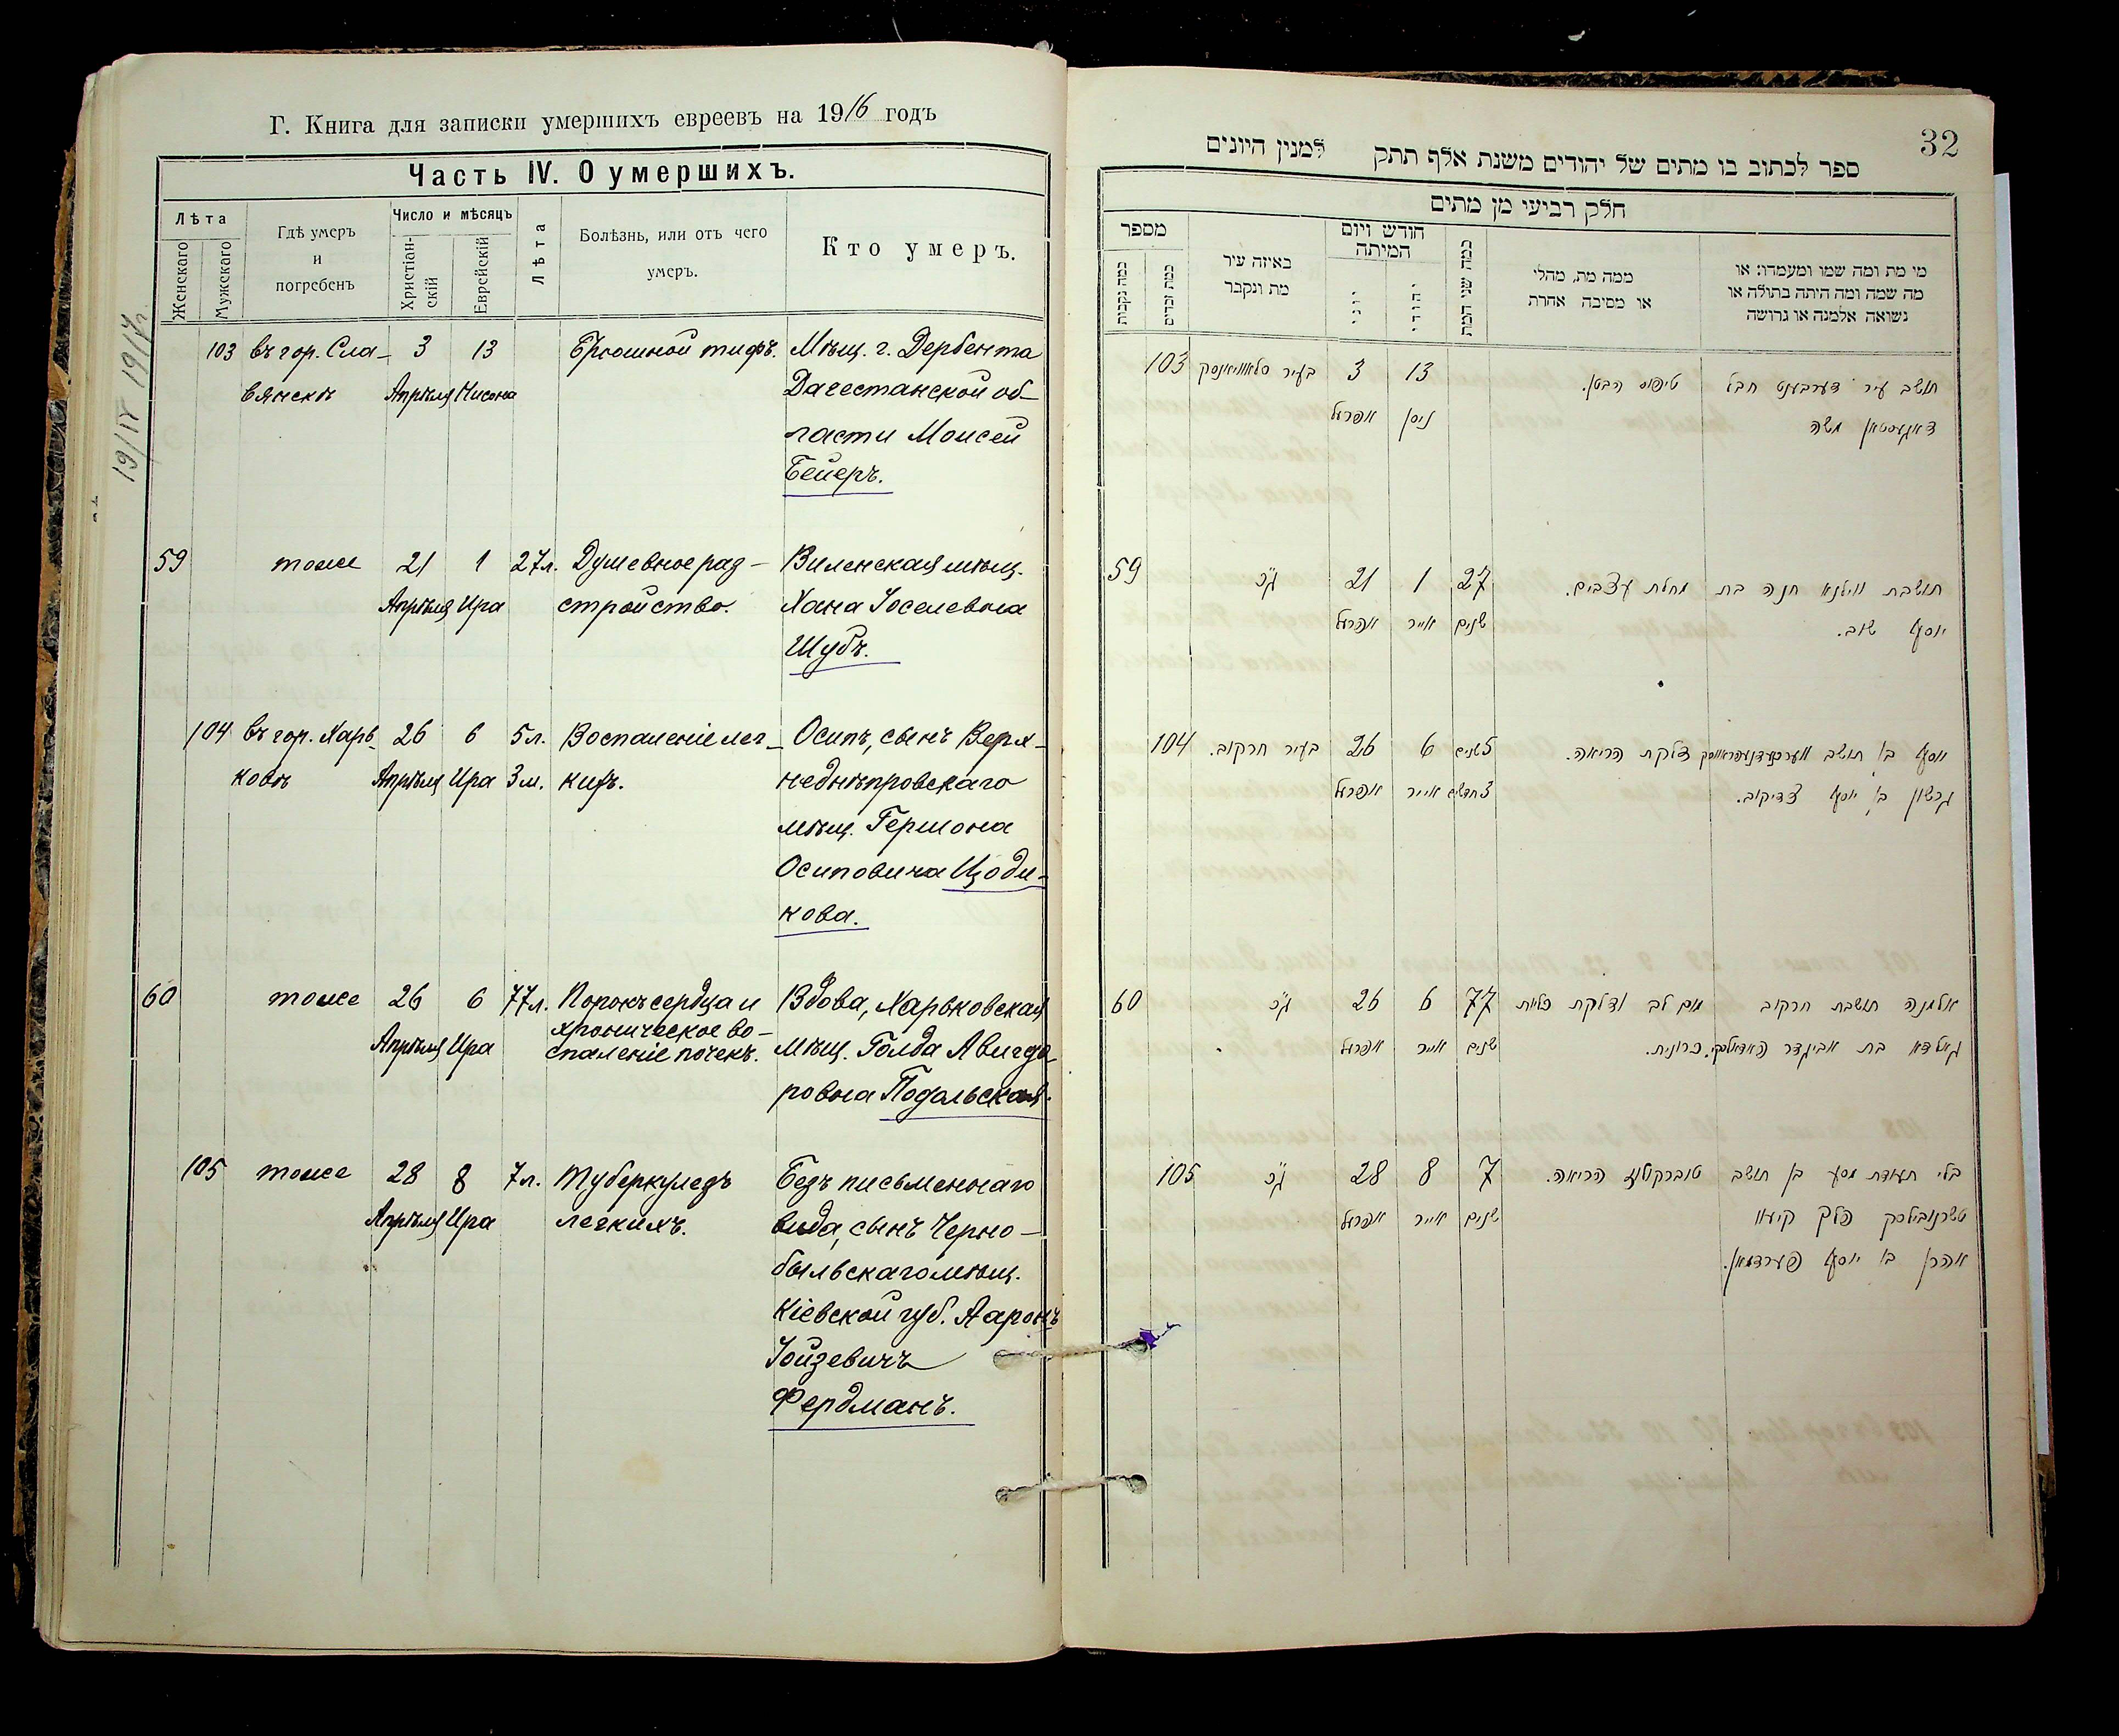 Г. Книга для записки умершихъ евреевъ на 1916 годъ
Часть IV. О умершихъ.
Лѣта
Женскаго
Мужскаго
Гдѣ умеръ
и
погребенъ
Число и мѣсяцъ
Христіан-
скій
Еврейскій
Лѣта
Болѣзнь, или отъ чего
умеръ.
Кто умеръ.
103 въ гор. Сла- 3 13 Брюшной тифъ. Мѣщ. г. Дербента
вянскѣ Апрѣля Нисона Дагестанской об-
ласти Моисей
Бейеръ.
59 тоже 21 1 27л. Душевное раз- Виленская мѣщ.
Апрѣля Ира стройство. Хана Іоселевна
Шубъ.
104 въ гор. Харь- 26 6 5л. Воспаленіе лег- Осипъ, сынъ Верх-
ковѣ Апрѣля Ира 3м. кихъ. неднѣпровскаго
мѣщ. Гершона
Осиповича Цоди-
кова.
60 тоже 26 6 77л. Порокъ сердца и Вдова, Харьковская
хроническое во-
Апрѣля Ира спаленіе почекъ. мѣщ. Голда Авигдо-
ровна Подольская.
105 тоже 28 8 7л. Туберкулезъ Безъ письменнаго
Апрѣля Ира легкихъ. вида, сынъ Черно-
быльскаго мѣщ.
Кіевской губ. Ааронъ
Іойзевичъ
Фердманъ.
32
ספר לכתוב בו מתים של יהודים משנת אלף תתק למנין היונים
חלק רביעי מן מתים
מספר
כמה נקבות
כמה זכרים
באיזה עיר
מת ונקבר
חודש ויום
המיתה
יוני
יהודי
כמה שני המת
ממה מת, מהלי
או מסיבה אחרת
מי מת ומה שמו ומעמדו: או
מה שמה ומה היתה בתולה או
נשואה אלמנה או גרושה
103 בעיר סלאוויאנסק 3 13 טיפוס הבטן. תושב עיר דערבענט חבל
אפרעל ניסן דאגעסטאן משה
59 ג"כ 21 1 27 מחלת עצבים. תושבת ווילנא חנה בת
אפרעל אייר שנים יוסף שוב.
104 בעיר חרקוב. 26 6 5 שנים דלקת הריאה. יוסף בן תושב
אפרעל אייר 3 חדשים גרשון בן יוסף צדיקוב.
60 ג"כ 26 6 77 מום לב ודלקת כליות אלמנה תושבת חרקוב
אפרעל אייר שנים כרונית. גאלדא בת אביגדר
105 ג"כ 28 8 7 הריאה. בלי תעודת מסע בן תושב
אפרעל אייר שנים פלך קיעוו
אהרן בן יוסף פערדמאן.